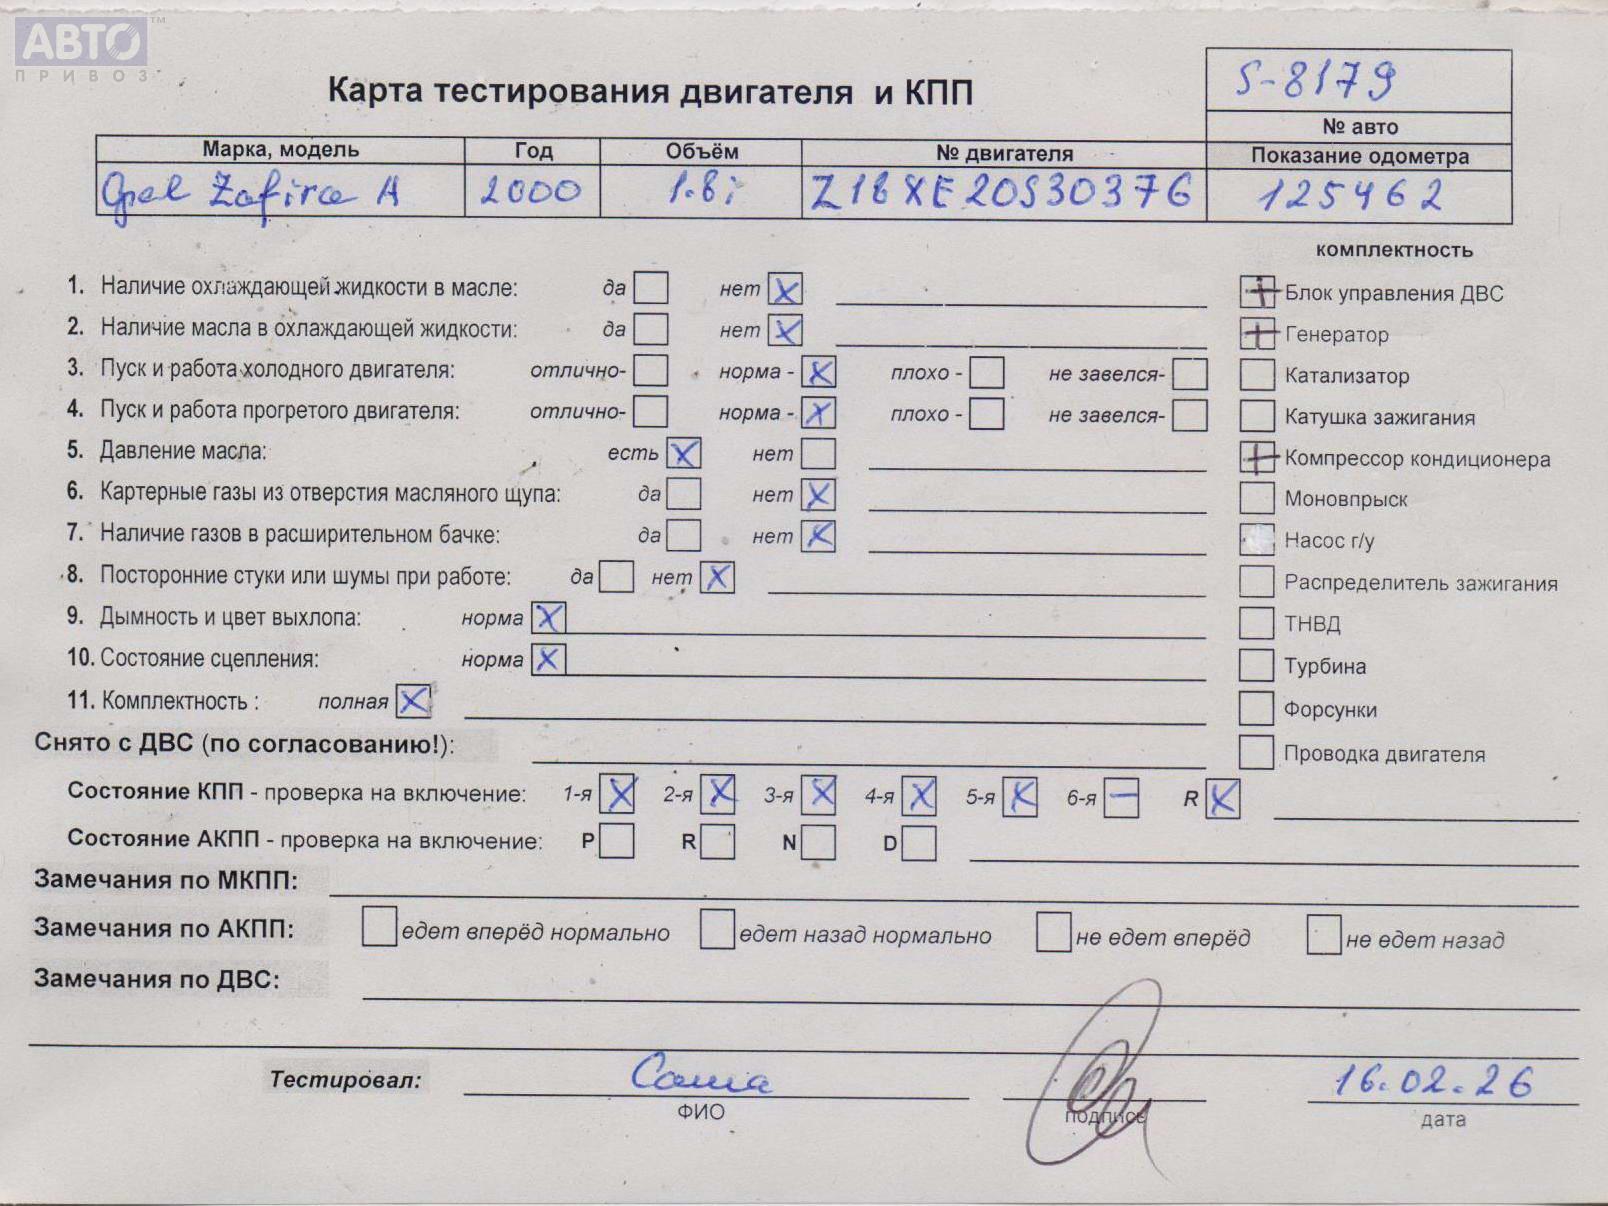 АВТО™
ПРИВОЗ
Карта тестирования двигателя и КПП
S-8179
№ авто
Марка, модель Год Объём № двигателя Показание одометра
Opel Zafira A 2000 1.8i Z18XE20S30376 125462
комплектность
1. Наличие охлаждающей жидкости в масле: да нет X
Блок управления ДВС
2. Наличие масла в охлаждающей жидкости: да нет X
Генератор
3. Пуск и работа холодного двигателя: отлично- норма - X плохо - не завелся-
Катализатор
4. Пуск и работа прогретого двигателя: отлично- норма - X плохо - не завелся-
Катушка зажигания
5. Давление масла: есть X нет
Компрессор кондиционера
6. Картерные газы из отверстия масляного щупа: да нет X
Моновпрыск
7. Наличие газов в расширительном бачке: да нет X
Насос г/у
8. Посторонние стуки или шумы при работе: да нет X
Распределитель зажигания
9. Дымность и цвет выхлопа: норма X
ТНВД
10. Состояние сцепления: норма X
Турбина
11. Комплектность : полная X
Форсунки
Снято с ДВС (по согласованию!):
Проводка двигателя
Состояние КПП - проверка на включение: 1-я X 2-я X 3-я X 4-я X 5-я X 6-я — R X
Состояние АКПП - проверка на включение: P R N D
Замечания по МКПП:
Замечания по АКПП: едет вперёд нормально едет назад нормально не едет вперёд не едет назад
Замечания по ДВС:
Тестировал: Саша 16.02.26
ФИО подпись дата